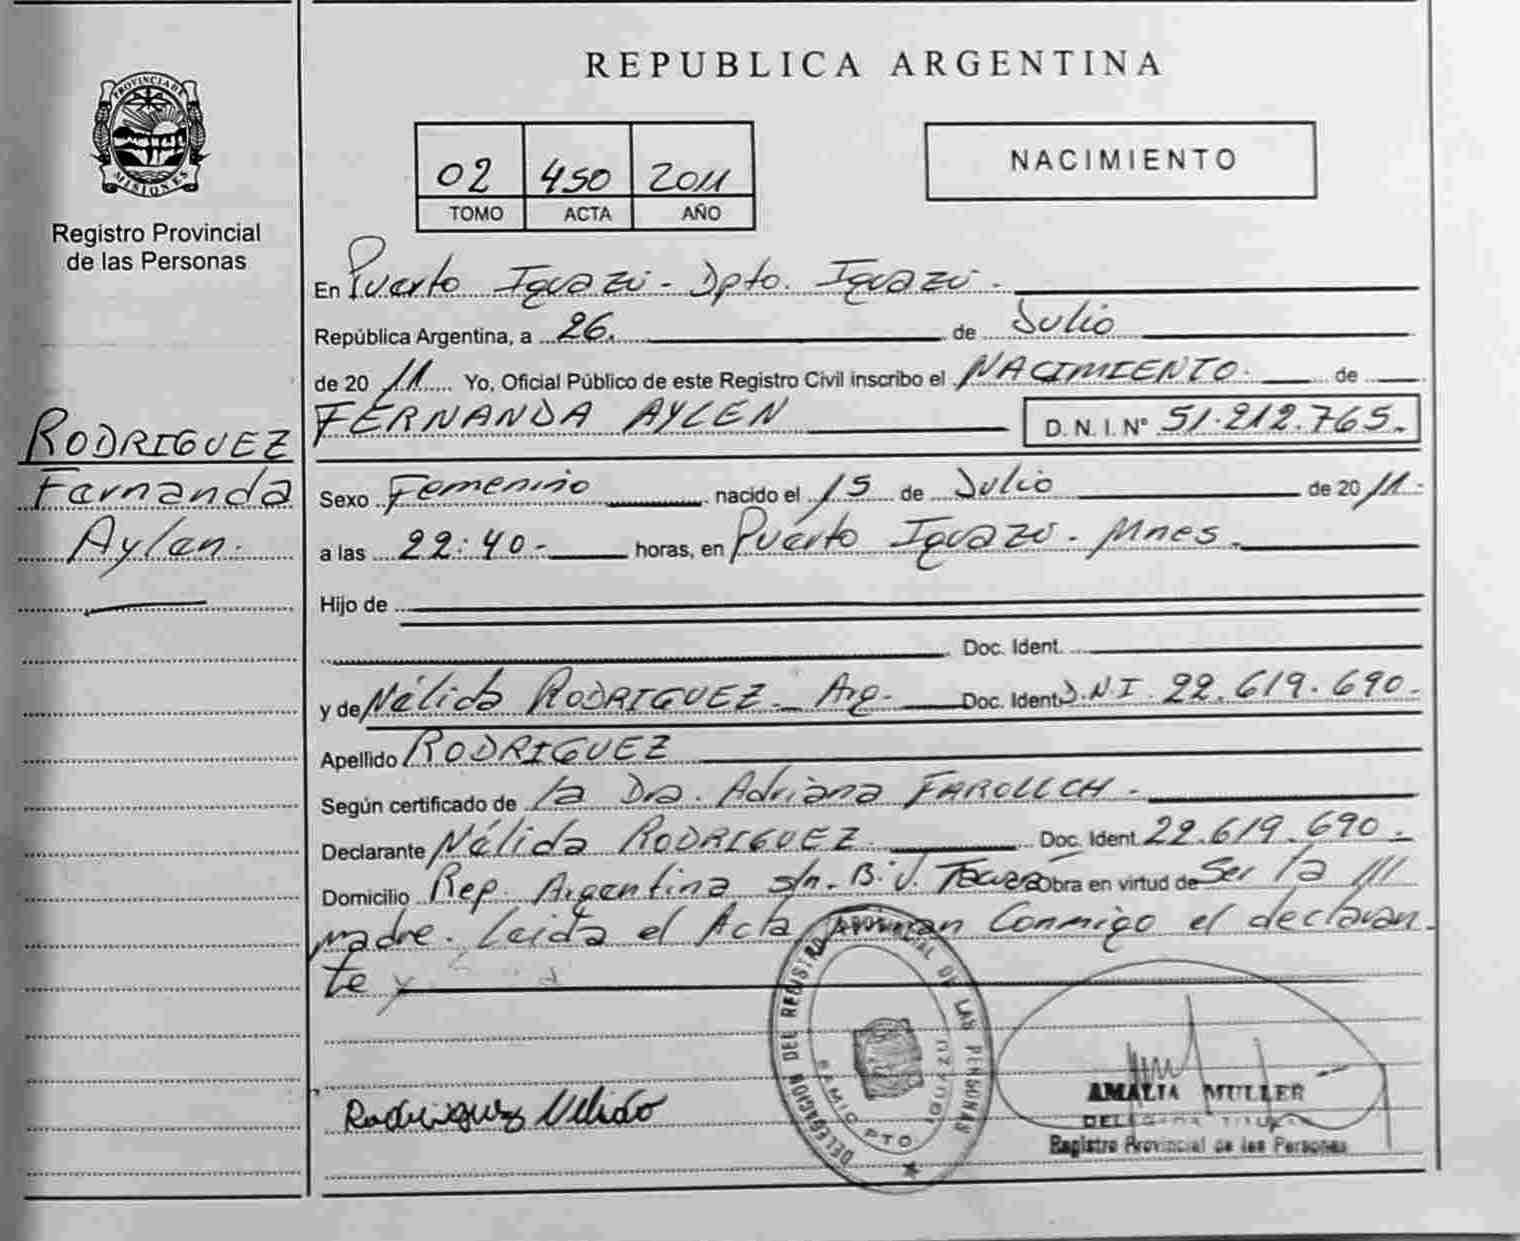 REPUBLICA ARGENTINA
PROVINCIA DE MISIONES
Registro Provincial
de las Personas
02 450 2011
TOMO ACTA AÑO
NACIMIENTO
En Puerto Iguazú - Dpto. Iguazú -
República Argentina, a 26. de Julio
de 2011 Yo, Oficial Público de este Registro Civil inscribo el NACIMIENTO. de
FERNANDA AYLEN D.N.I. N° 51.212.765.
RODRIGUEZ
Fernanda
Aylen.
Sexo Femenino nacido el 15 de Julio de 2011.
a las 22:40- horas, en Puerto Iguazú - Mnes.
Hijo de
Doc. Ident.
y de Nélida RODRIGUEZ - Arg. Doc. Ident. D.N.I. 22.619.690.
Apellido RODRIGUEZ
Según certificado de la Dra. Adriana
Declarante Nélida RODRIGUEZ Doc. Ident. 22.619.690.
Domicilio Rep. Argentina s/n. B: J. Obra en virtud de Ser la ///
madre. Leida el Acta conmigo el declaran-
te y
DELEGACION DEL REGISTRO PROVINCIAL DE LAS PERSONAS
PTO IGUAZU
Rodriguez Nelida
AMALIA MULLER
DELEGADA TITULAR
Registro Provincial de las Personas